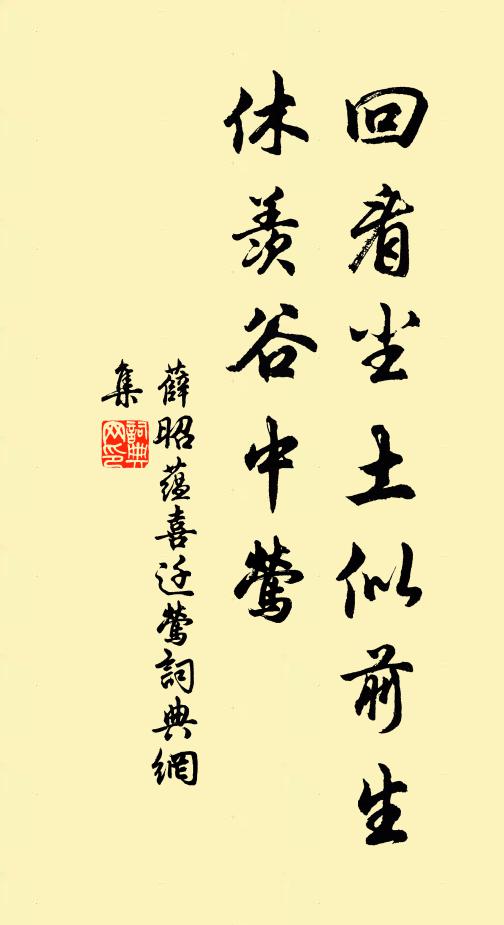 回看尘土似前生
休羡谷中莺
薛昭蕴喜迁莺詞典網
集
詞典网印